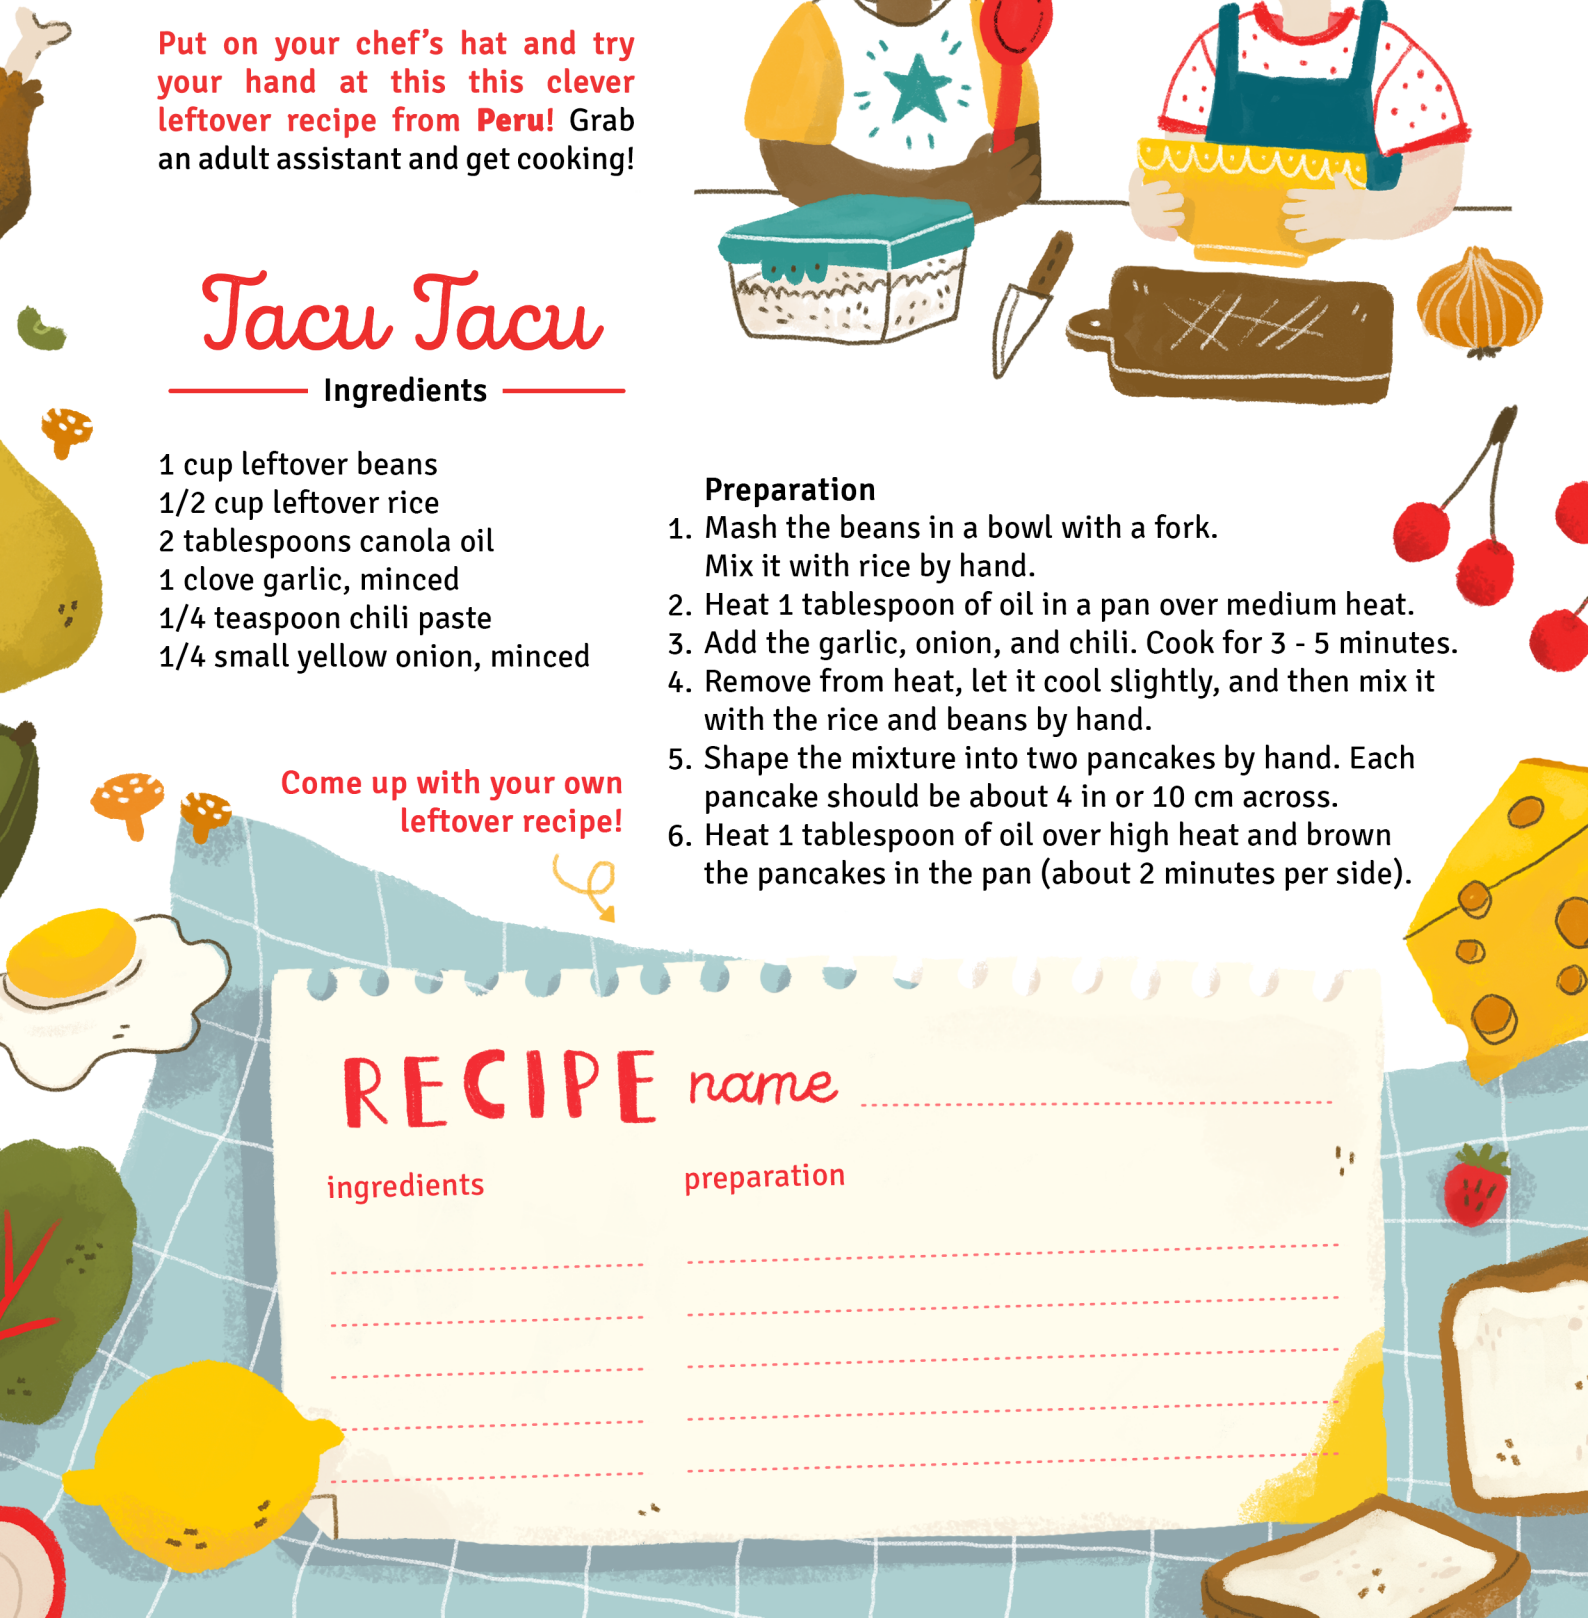 Put on your chef’s hat and try
your hand at this this clever
leftover recipe from Peru! Grab
an adult assistant and get cooking!
Tacu Tacu
Ingredients
1 cup leftover beans
1/2 cup leftover rice
2 tablespoons canola oil
1 clove garlic, minced
1/4 teaspoon chili paste
1/4 small yellow onion, minced
Preparation
1. Mash the beans in a bowl with a fork.
Mix it with rice by hand.
2. Heat 1 tablespoon of oil in a pan over medium heat.
3. Add the garlic, onion, and chili. Cook for 3 - 5 minutes.
4. Remove from heat, let it cool slightly, and then mix it
with the rice and beans by hand.
5. Shape the mixture into two pancakes by hand. Each
pancake should be about 4 in or 10 cm across.
6. Heat 1 tablespoon of oil over high heat and brown
the pancakes in the pan (about 2 minutes per side).
Come up with your own
leftover recipe!
RECIPE name
ingredients
preparation